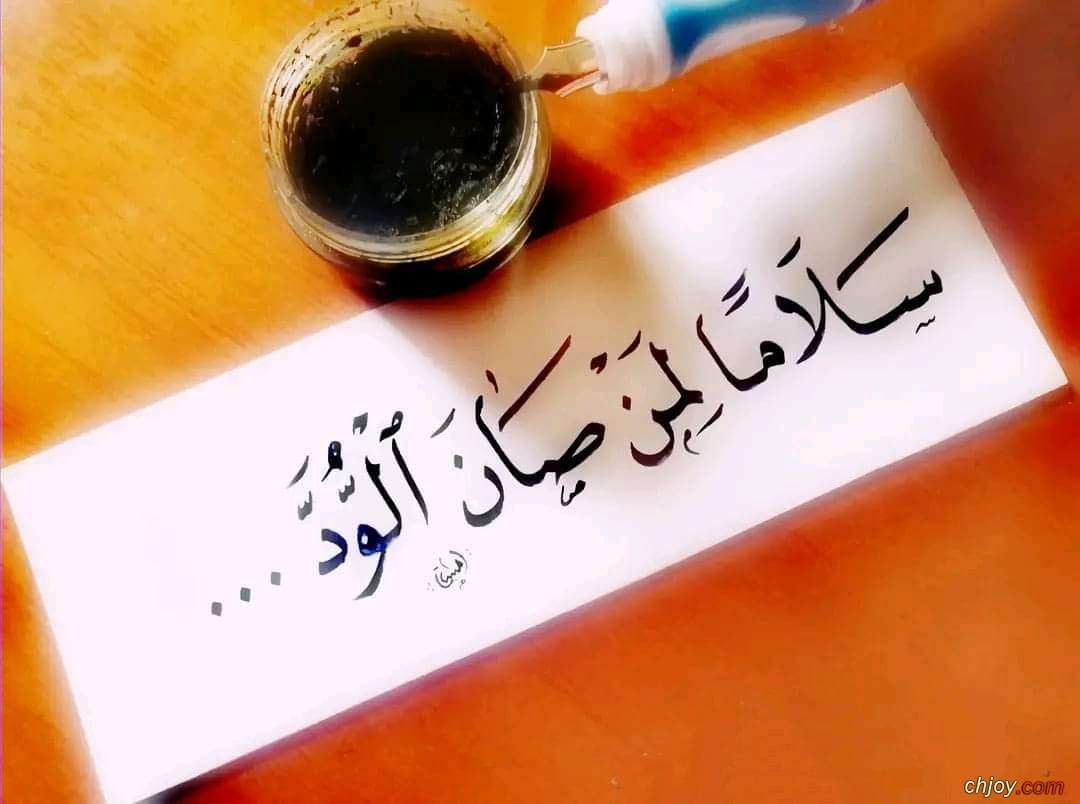 سَلَامًا لِمَنْ صَانَ ٱلْوُدَّ ...
chjoy.com